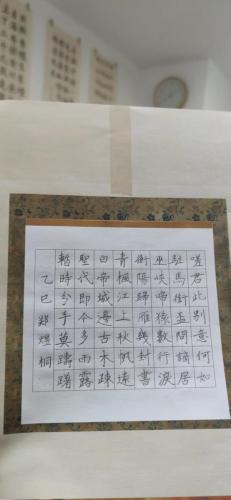 嗟君此別意何如
駐馬銜盃問謫居
巫峽啼猿數行淚
衡陽歸雁幾封書
青楓江上秋帆遠
白帝城邊古木疎
聖代即今多雨露
暫時分手莫躊躇
乙巳鄭煜桐